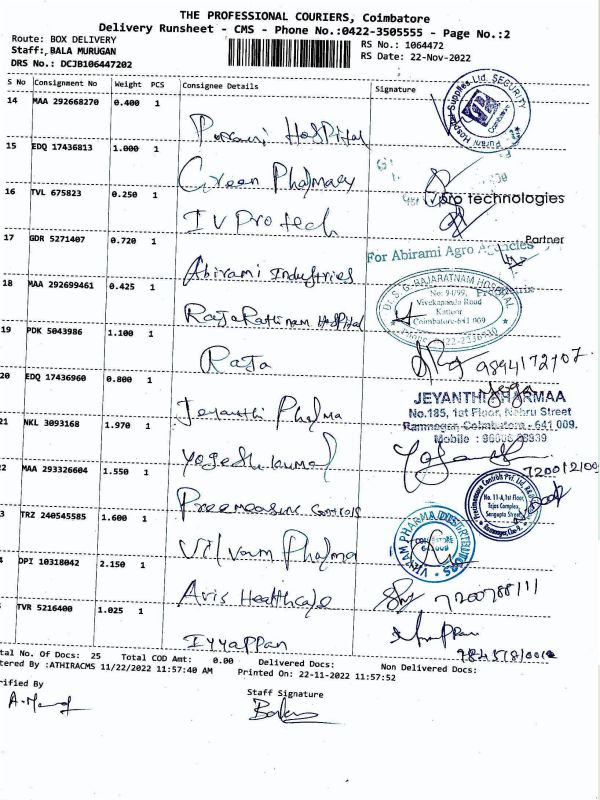 THE PROFESSIONAL COURIERS, Coimbatore
Delivery Runsheet - CMS - Phone No.:0422-3505555 - Page No.:2
Route: BOX DELIVERY
RS No.: 1064472
Staff:,BALA MURUGAN
RS Date: 22-Nov-2022
DRS No.: DCJB106447202
S No Consignment No Weight PCS Consignee Details Signature
14 MAA 292668270 0.400 1
Purani Hospital
Purani Hospital Supplies Ltd. SECURITY
Coimbatore
15 EDQ 17436813 1.000 1
Green Pharmacy
16 TVL 675823 0.250 1
IV Protech
pro technologies
Partner
17 GDR 5271407 0.720 1
Abirami Industries
For Abirami Agro Agencies
18 MAA 292699461 0.425 1
RajaRathinam Hospital
Dr. S. G. RAJARATNAM HOSPITAL
No: 94/99,
Vivekananda Road
Kattoor
Coimbatore-641 009
19 PDK 5043986 1.100 1
Raja
9894172707.
20 EDQ 17436960 0.800 1
Jeyanthi Pharma
JEYANTHI PHARMAA
No.185, 1st Floor, Nehru Street
Ramnagar, Coimbatore - 641 009.
21 NKL 3093168 1.970 1
Yogeshkumar
2 MAA 293326604 1.550 1
Preemeasure Controls
No. 11-A, 1st Floor,
Tejas Complex,
Sengupta Street
Ramnagar, Cbe-9.
3 TRZ 240545585 1.600 1
Vilvam Pharma
VILVAM PHARMA DISTRIBUTORS
641 009
4 DPI 10318042 2.150 1
Aris Healthcare
5 TVR 5216400 1.025 1
Iyyappan
tal No. Of Docs: 25 Total COD Amt: 0.00 Delivered Docs: Non Delivered Docs:
tered By :ATHIRACMS 11/22/2022 11:57:40 AM Printed On: 22-11-2022 11:57:52
rified By
Staff Signature